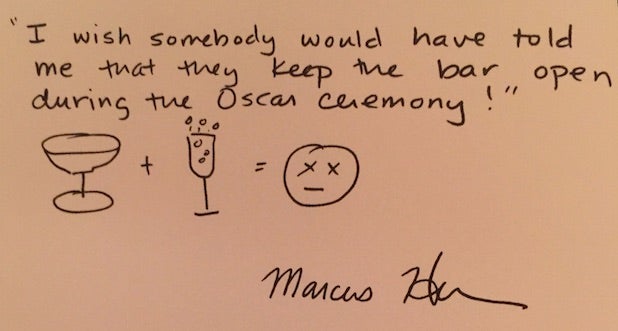 "I wish somebody would have told
me that they keep the bar open
during the Oscar ceremony!"
+ =
Marcus